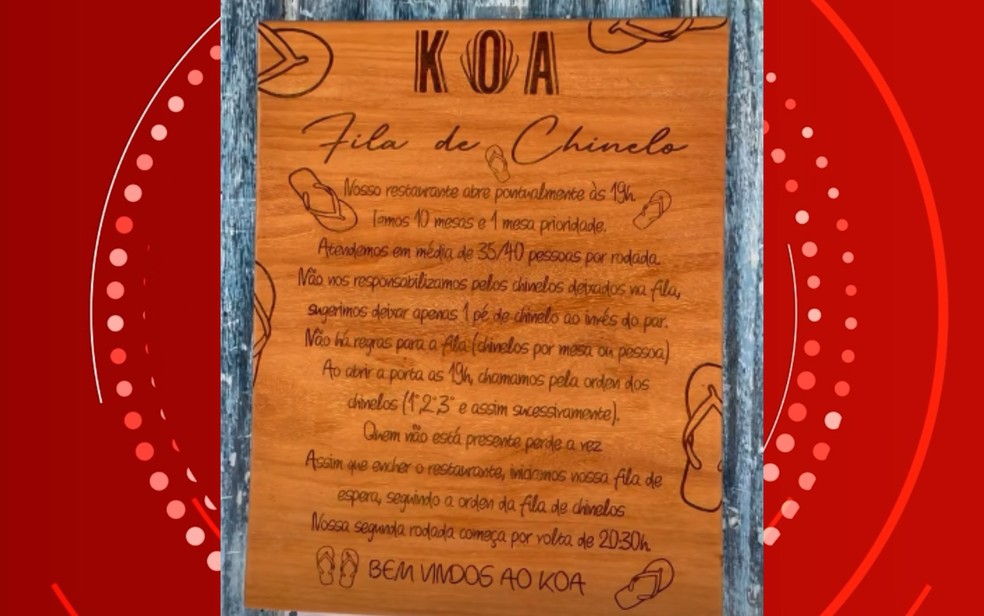 KOA
Fila de Chinelo
Nosso restaurante abre pontualmente às 19h
Temos 10 mesas e 1 mesa prioridade.
Atendemos em média de 35/40 pessoas por rodada.
Não nos responsabilizamos pelos chinelos deixados na fila,
sugerimos deixar apenas 1 pé de chinelo ao invés do par.
Não há regras para a fila (chinelos por mesa ou pessoa)
Ao abrir a porta as 19h, chamamos pela orden dos
chinelos (1°,2°,3° e assim sucessivamente).
Quem não está presente perde a vez
Assim que encher o restaurante, iniciamos nossa fila de
espera, seguindo a orden da fila de chinelos
Nossa segunda rodada começa por volta de 20:30h
BEM VINDOS AO KOA